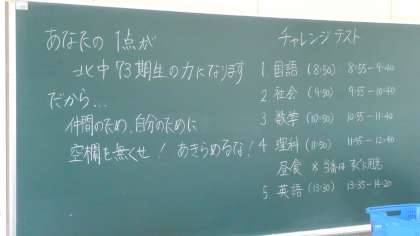 あなたの 1点が
北中 73期生の力になります
だから...
仲間のため、自分のために
空欄を無くせ! あきらめるな!
チャレンジテスト
1 国語 (8:50) 8:55-9:40
2 社会 (9:50) 9:55-10:40
3 数学 (10:50) 10:55-11:40
4 理科 (11:50) 11:55-12:40
昼食 ※当番は すぐに用意
5 英語 (13:30) 13:35-14:20